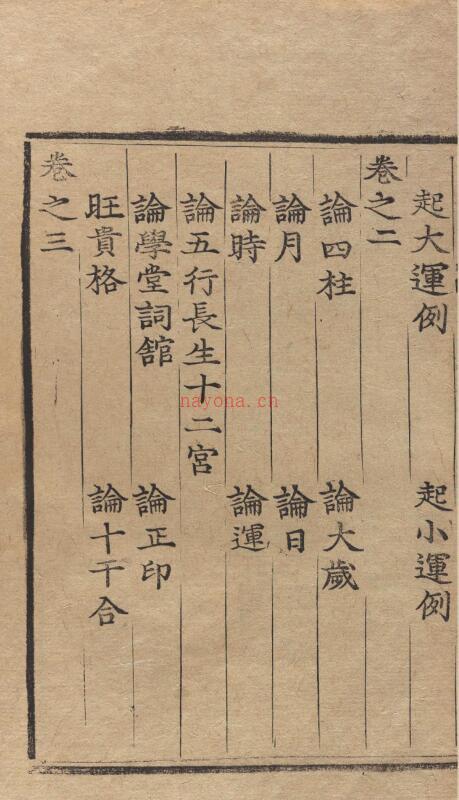 起大運例 起小運例
卷之二
論四柱 論大歲
論月 論日
論時 論運
論五行長生十二宮
論學堂詞舘 論正印
旺貴格 論十干合
卷之三
nayona.cn